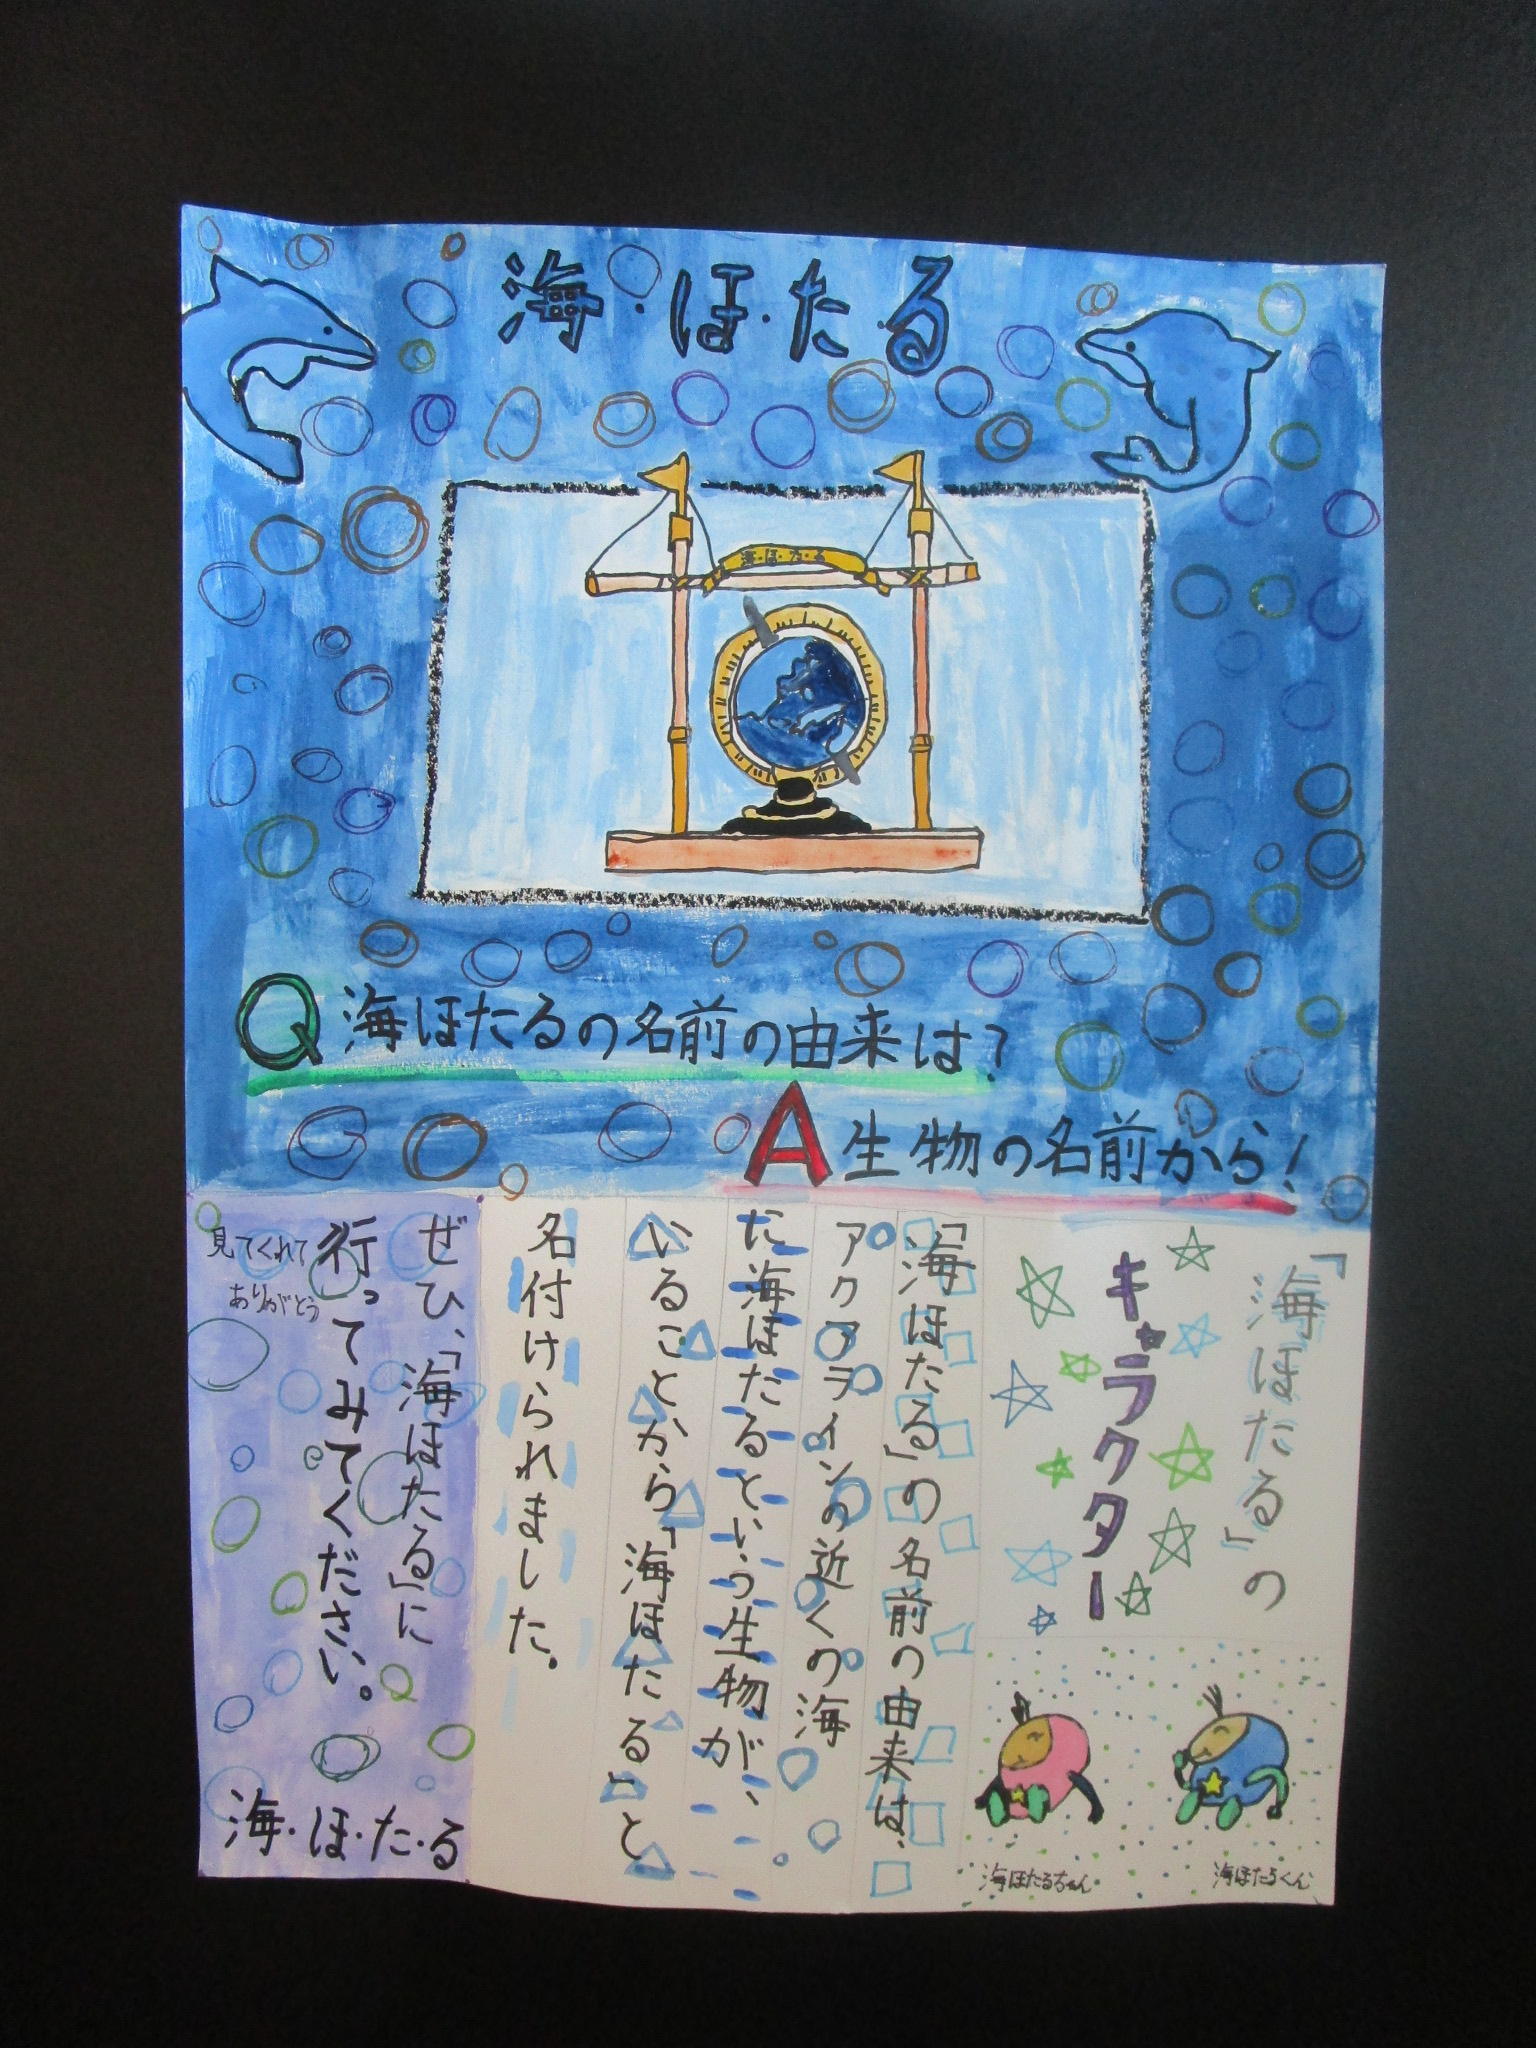 海・ほ・た・る
海・ほ・た・る
Q海ほたるの名前の由来は?
A生物の名前から!
「海ほたる」の
キャラクター
海ほたるくん
海ほたるちゃん
「海ほたる」の名前の由来は、
アクアラインの近くの海
に海ほたるという生物が、
いることから「海ほたる」と
名付けられました。
ぜひ、「海ほたる」に
行ってみてください。
見てくれて
ありがとう
海・ほ・た・る